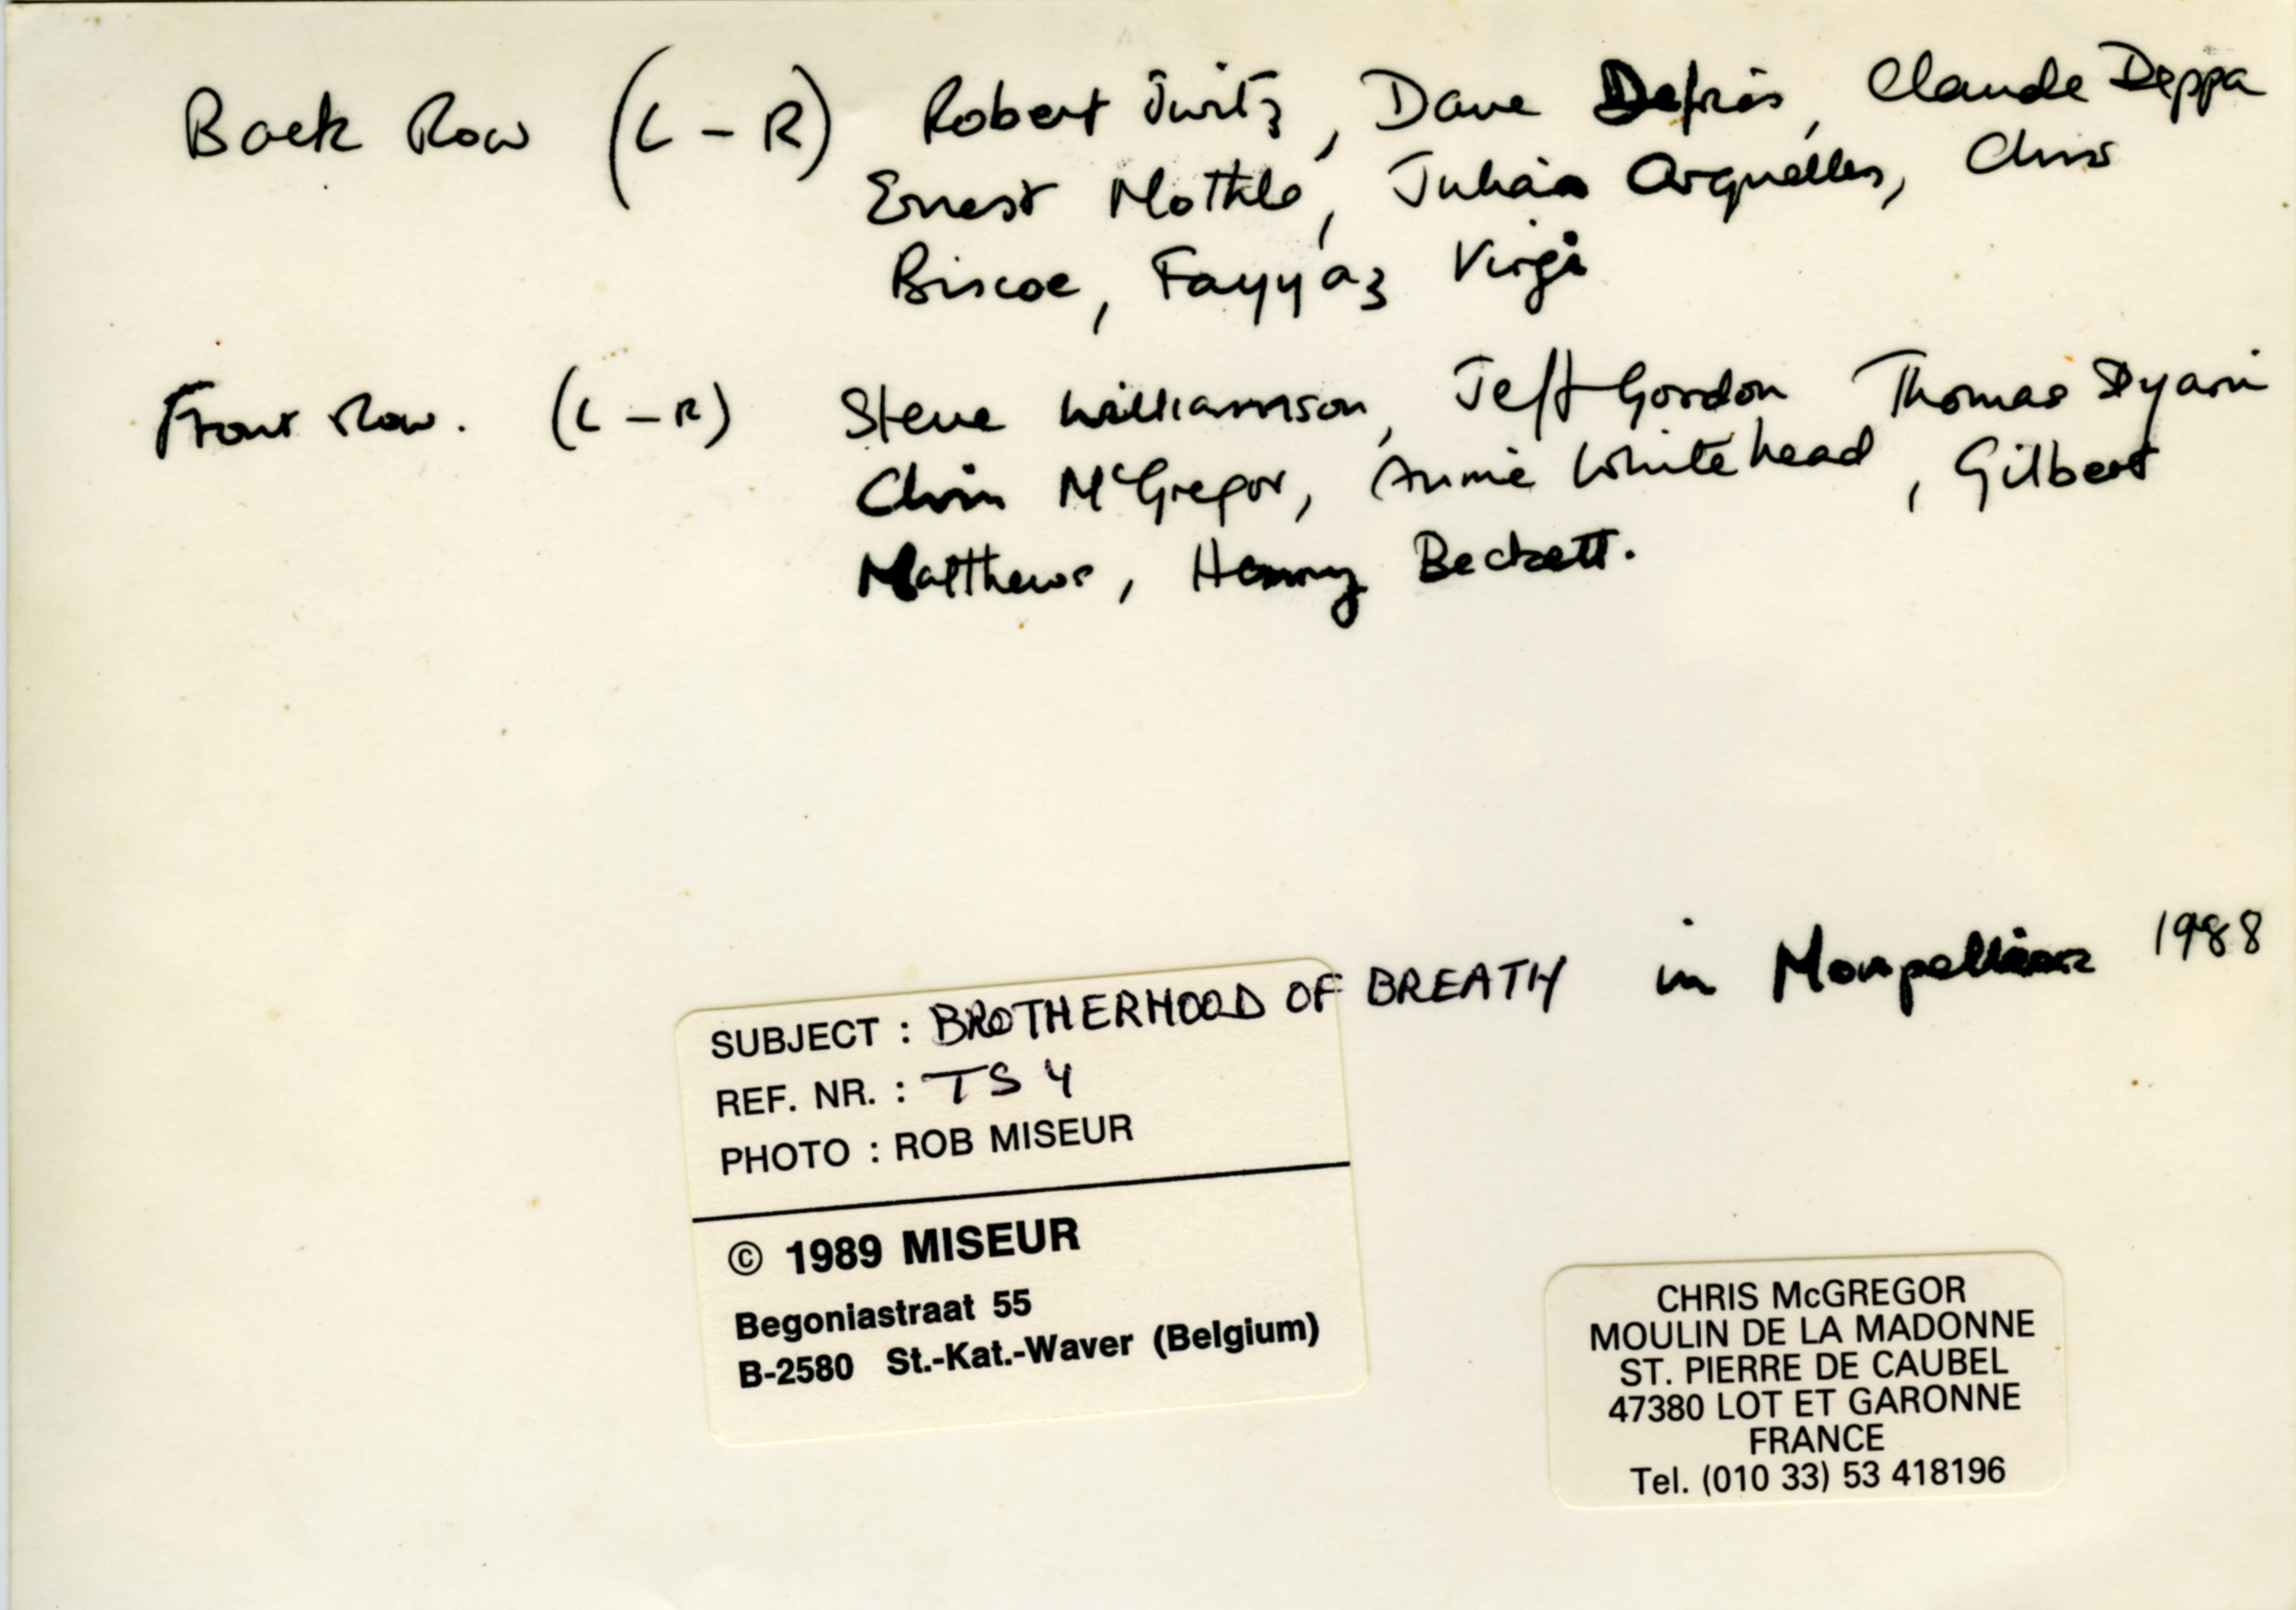 Back Row (L - R) Robert Juritz, Dave Defries, Claude Deppa
Ernest Mothle, Julian Arguelles, Chris
Biscoe, Fayyaz Virgi
Front Row. (L - R) Steve Williamson, Jeff Gordon Thomas Dyani
Chris McGregor, Annie Whitehead, Gilbert
Matthews, Harry Beckett.
SUBJECT : BROTHERHOOD OF BREATH in 1988
REF. NR. : TS 4
PHOTO : ROB MISEUR
© 1989 MISEUR
Begoniastraat 55
B-2580 St.-Kat.-Waver (Belgium)
CHRIS McGREGOR
MOULIN DE LA MADONNE
ST. PIERRE DE CAUBEL
47380 LOT ET GARONNE
FRANCE
Tel. (010 33) 53 418196